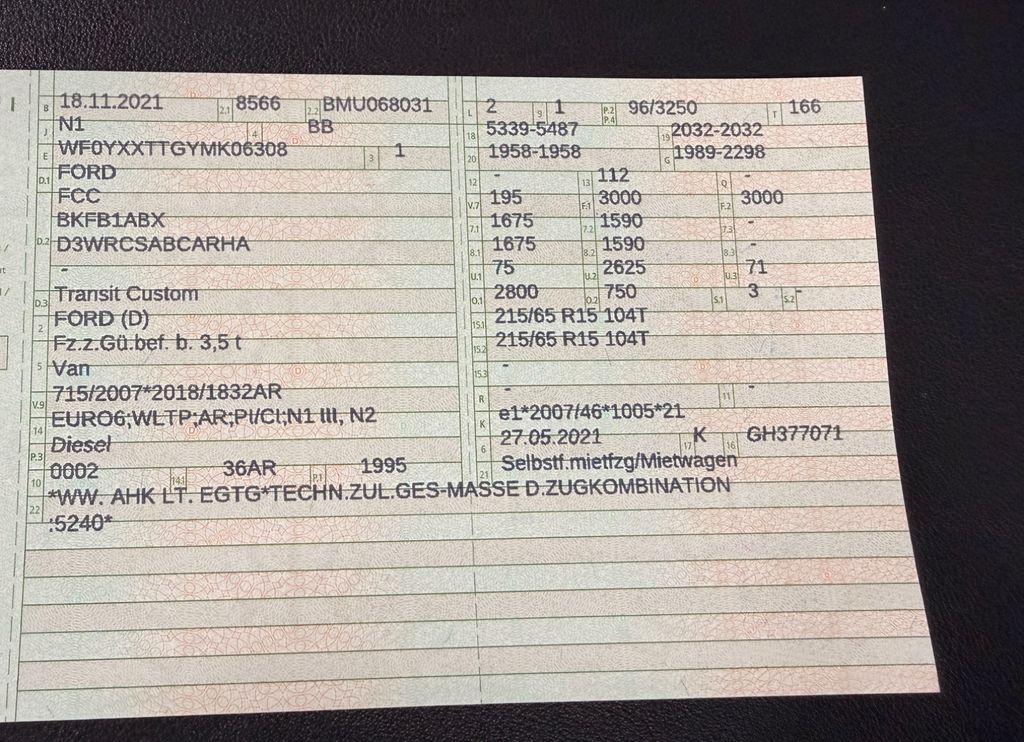 B 18.11.2021 2.1 8566 2.2 BMU068031
J N1 4 BB
E WF0YXXTTGYMK06308 3 1
D.1 FORD
FCC
BKFB1ABX
D.2 D3WRCSABCARHA
-
D.3 Transit Custom
2 FORD (D)
Fz.z.Gü.bef. b. 3,5 t
5 Van
V.9 715/2007*2018/1832AR
14 EURO6;WLTP;AR;PI/CI;N1 III, N2
P.3 Diesel
10 0002 14.1 36AR P.1 1995
L 2 9 1 P.2 P.4 96/3250 T 166
18 5339-5487 19 2032-2032
20 1958-1958 G 1989-2298
12 - 13 112 Q -
V.7 195 F.1 3000 F.2 3000
7.1 1675 7.2 1590 7.3 -
8.1 1675 8.2 1590 8.3 -
U.1 75 U.2 2625 U.3 71
O.1 2800 O.2 750 S.1 3 S.2 -
15.1 215/65 R15 104T
15.2 215/65 R15 104T
15.3 -
R - 11 -
K e1*2007/46*1005*21
6 27.05.2021 17 K 16 GH377071
21 Selbstf.mietfzg/Mietwagen
22 *WW. AHK LT. EGTG*TECHN.ZUL.GES-MASSE D.ZUGKOMBINATION
:5240*